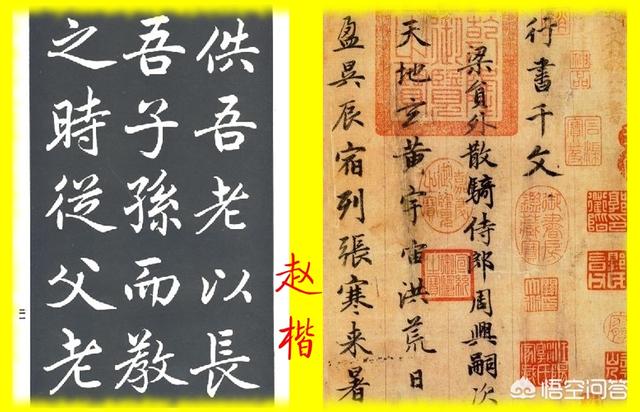 供吾老以長
吾子孫而教
之時從父老
赵楷
行書千文
梁員外散騎侍郎周興嗣次
天地玄黄宇宙洪荒日
盈昃辰宿列張寒来暑
悟空问答